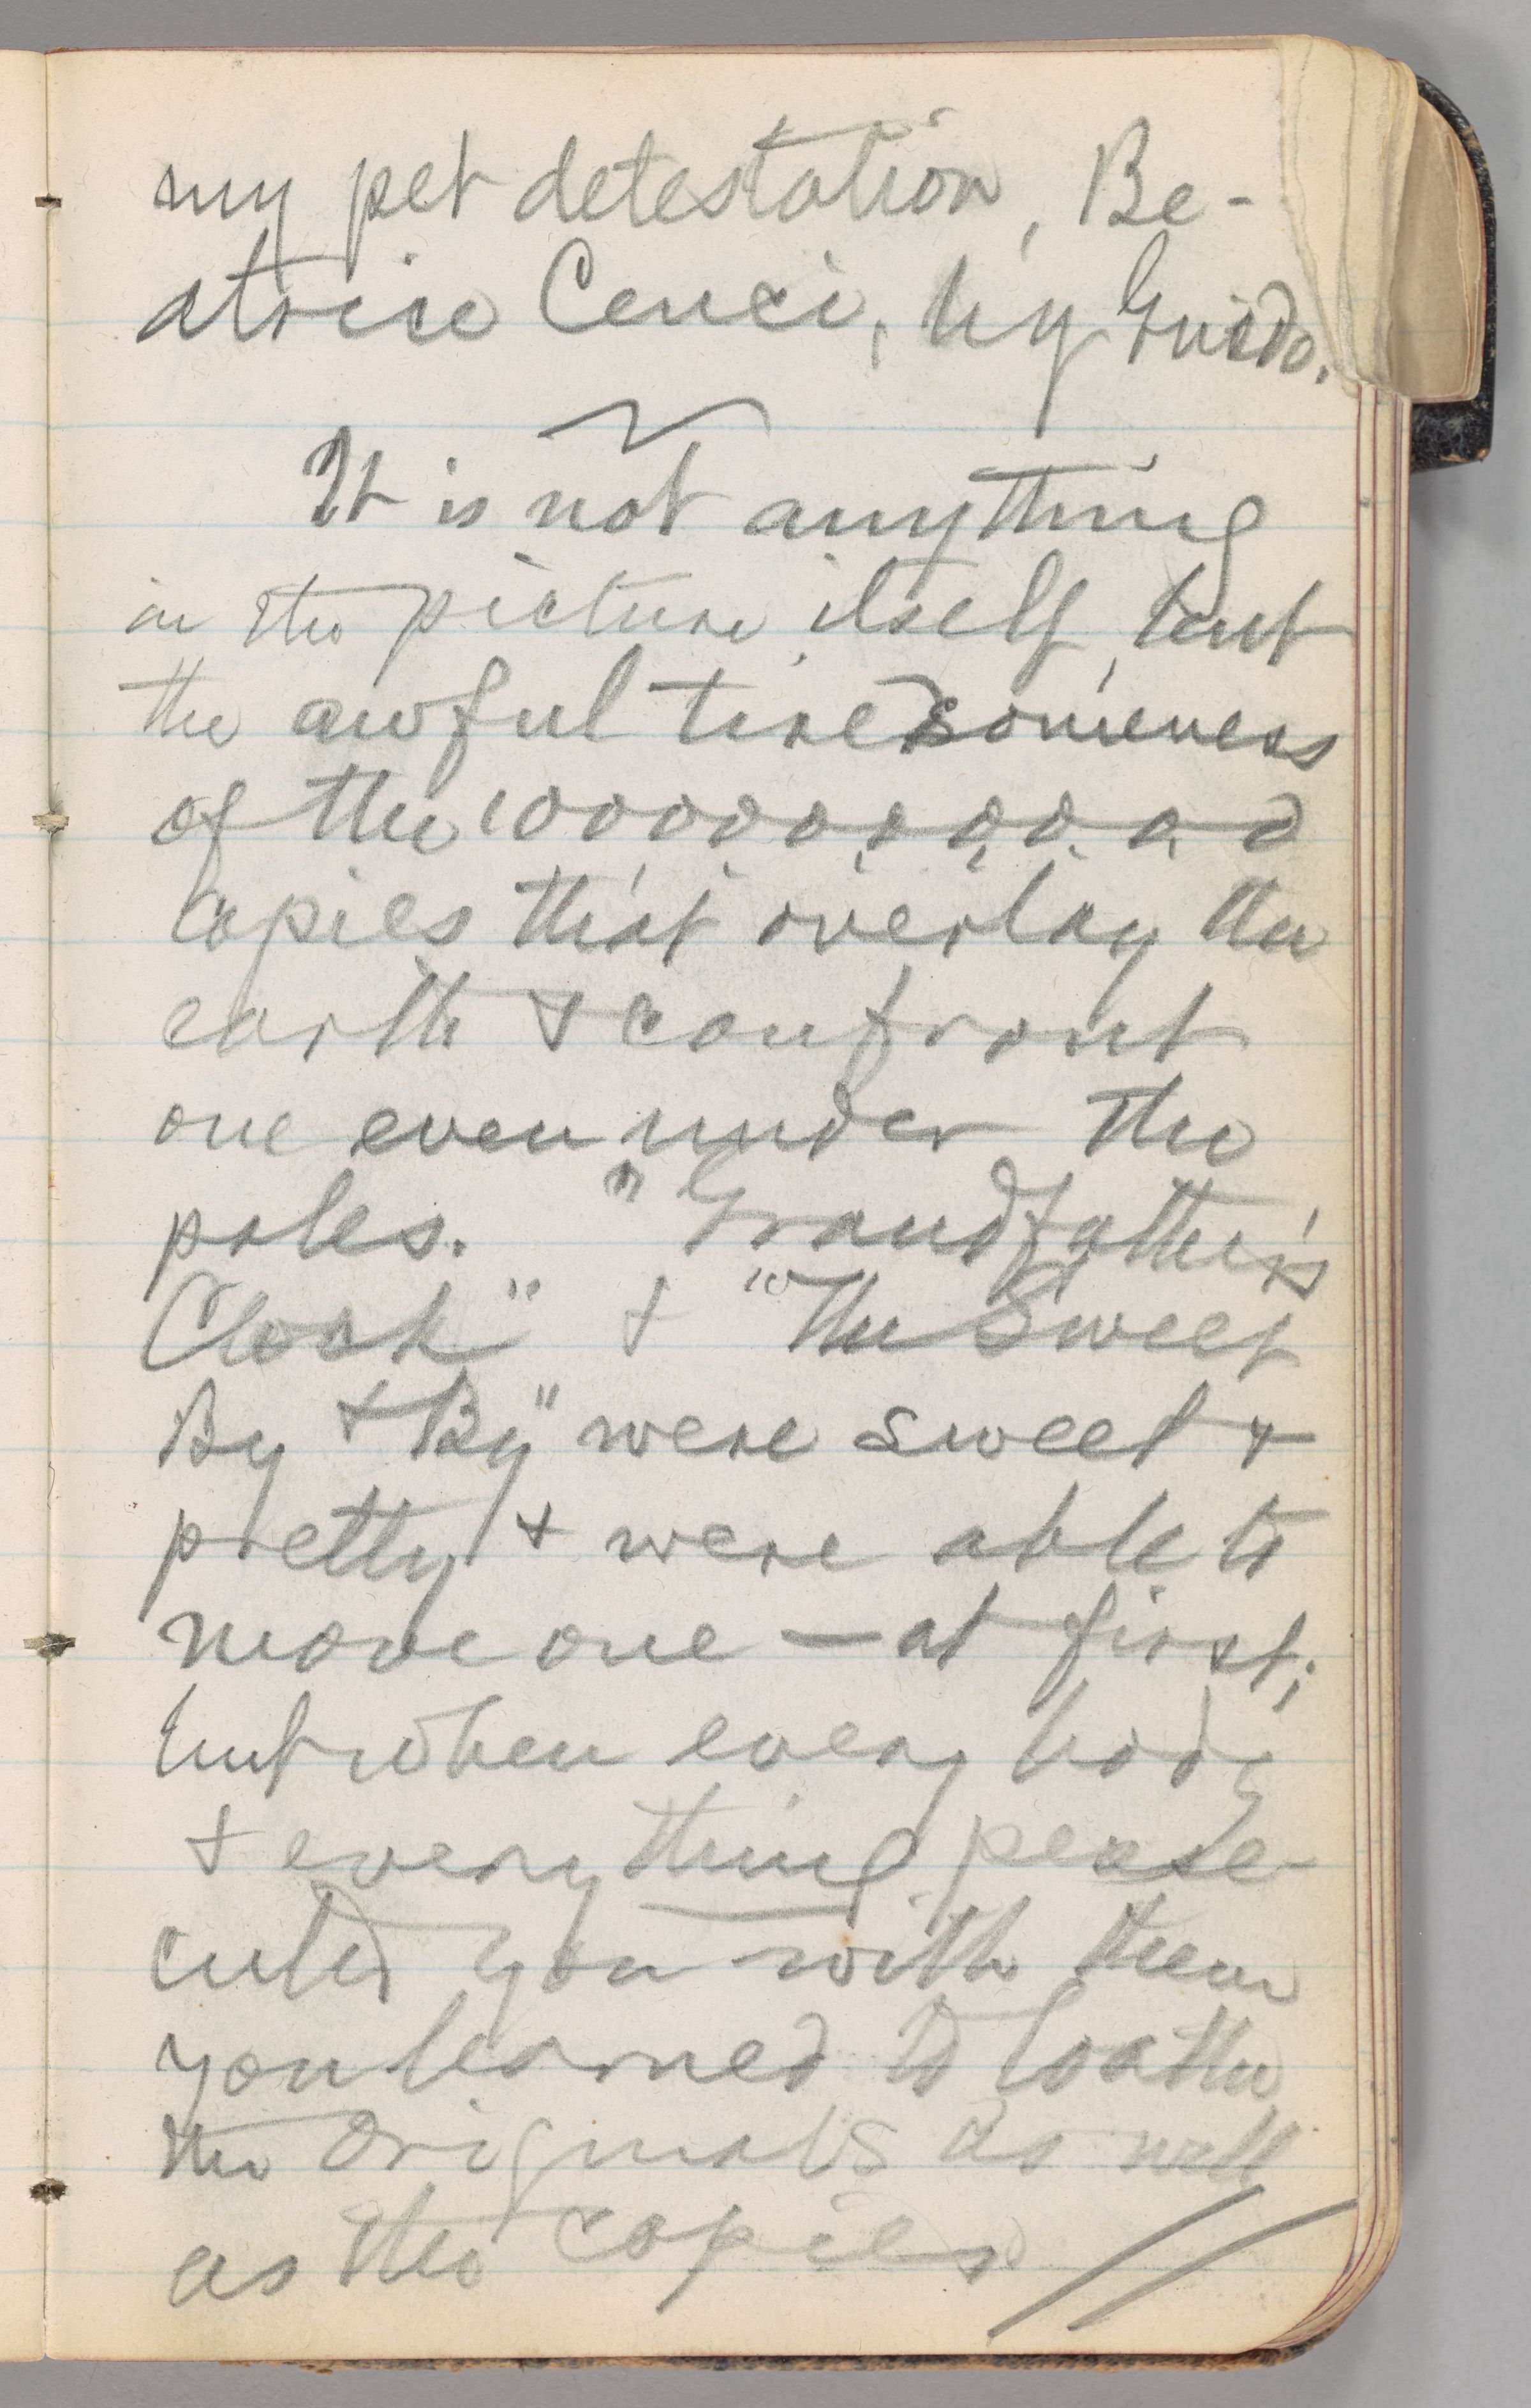 my pet detestation, Be-
atrice Cenci, by Guido.
It is not anything
in the picture itself, but
the awful tiresomeness
of the 1000,000,000,000
copies that overlay the
earth & confront
one even under the
poles. "Grandfather's
Clock" & "The Sweet
By & By" were sweet &
pretty & were able to
move one — at first;
but when every body
& everything perse-
cuted you with them
you learned to loathe
the originals as well
as the copies